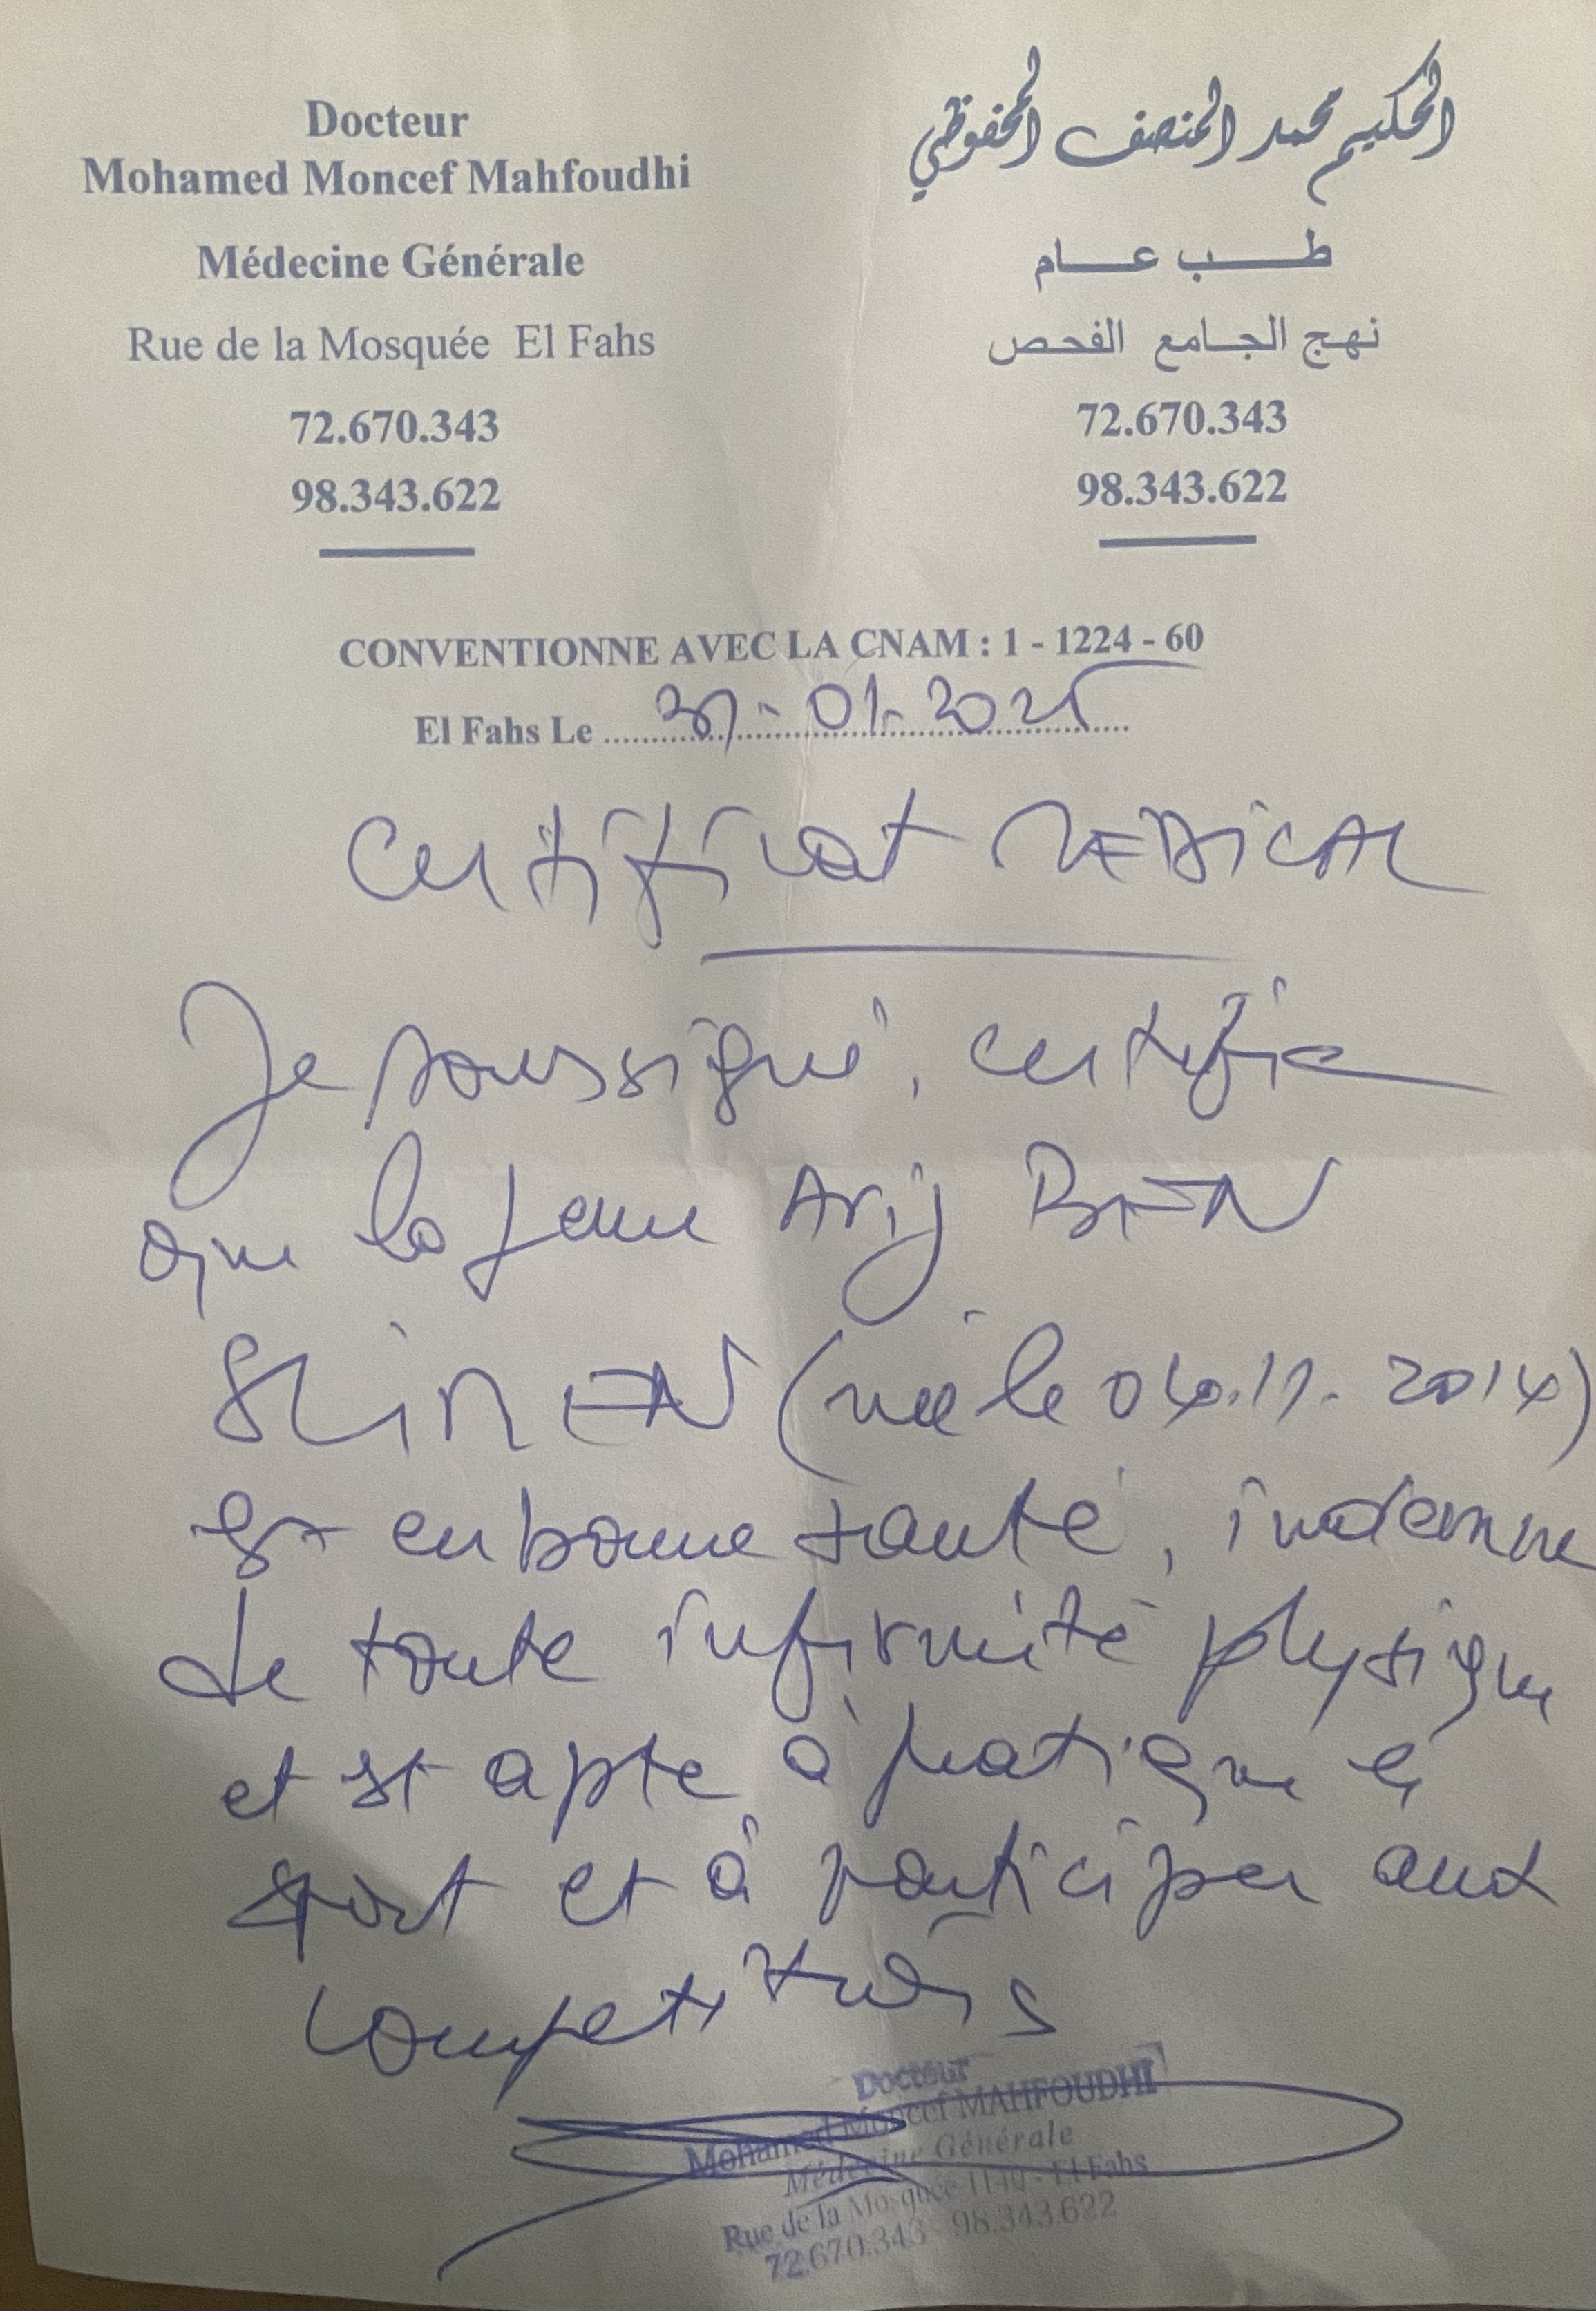 Docteur
Mohamed Moncef Mahfoudhi
Médecine Générale
Rue de la Mosquée El Fahs
72.670.343
98.343.622
الحكيم محمد المنصف المحفوظي
طب عام
نهج الجامع الفحص
72.670.343
98.343.622
CONVENTIONNE AVEC LA CNAM : 1 - 1224 - 60
El Fahs Le 01-2025
Certificat MEDICAL
Je soussigné, certifie
que la jeune Arij BEN
SLIMEN (née le 04.11.2014)
est en bonne santé, indemne
de toute infirmité physique
et est apte à pratiquer le
sport et à participer aux
compétitions
Docteur
Mohamed Moncef MAHFOUDHI
Médecine Générale
Rue de la Mosquée 1140 - El Fahs
72.670.343 - 98.343.622